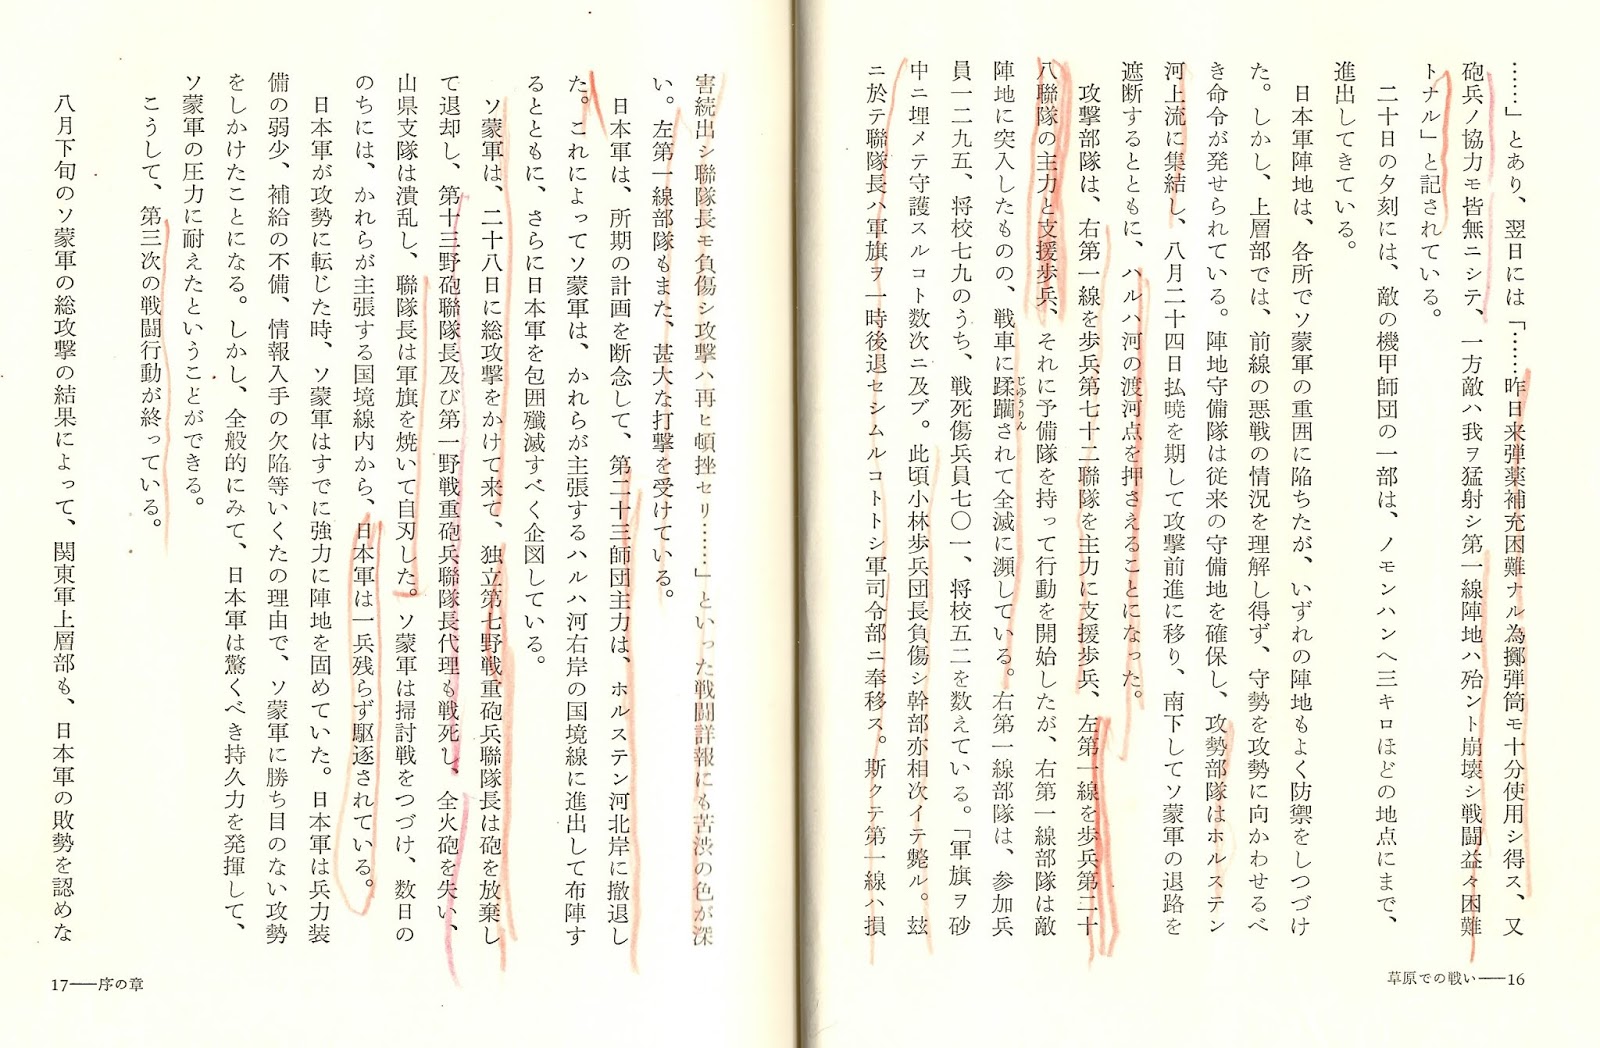 ……」とあり、翌日には「……昨日来弾薬補充困難ナル為擲弾筒モ十分使用シ得ス、又
砲兵ノ協力モ皆無ニシテ、一方敵ハ我ヲ猛射シ第一線陣地ハ殆ント崩壊シ戦闘益々困難
トナル」と記されている。
二十日の夕刻には、敵の機甲師団の一部は、ノモンハンへ三キロほどの地点にまで、
進出してきている。
日本軍陣地は、各所でソ蒙軍の重囲に陥ちたが、いずれの陣地もよく防禦をしつづけ
た。しかし、上層部では、前線の悪戦の情況を理解し得ず、守勢を攻勢に向かわせるべ
き命令が発せられている。陣地守備隊は従来の守備地を確保し、攻勢部隊はホルステン
河上流に集結し、八月二十四日払暁を期して攻撃前進に移り、南下してソ蒙軍の退路を
遮断するとともに、ハルハ河の渡河点を押さえることになった。
攻撃部隊は、右第一線を歩兵第七十二聯隊を主力に支援歩兵、左第一線を歩兵第二十
八聯隊の主力と支援歩兵、それに予備隊を持って行動を開始したが、右第一線部隊は敵
陣地に突入したものの、戦車に蹂躙じゅうりんされて全滅に瀕している。右第一線部隊は、参加兵
員一二九五、将校七九のうち、戦死傷兵員七〇一、将校五二を数えている。「軍旗ヲ砂
中ニ埋メテ守護スルコト数次ニ及ブ。此頃小林歩兵団長負傷シ幹部亦相次イテ斃ル。玆
ニ於テ聯隊長ハ軍旗ヲ一時後退セシムルコトトシ軍司令部ニ奉移ス。斯クテ第一線ハ損
草原での戦い——16
害続出シ聯隊長モ負傷シ攻撃ハ再ヒ頓挫セリ……」といった戦闘詳報にも苦渋の色が深
い。左第一線部隊もまた、甚大な打撃を受けている。
日本軍は、所期の計画を断念して、第二十三師団主力は、ホルステン河北岸に撤退し
た。これによってソ蒙軍は、かれらが主張するハルハ河右岸の国境線に進出して布陣す
るとともに、さらに日本軍を包囲殲滅すべく企図している。
ソ蒙軍は、二十八日に総攻撃をかけて来て、独立第七野戦重砲兵聯隊長は砲を放棄し
て退却し、第十三野砲聯隊長及び第一野戦重砲兵聯隊長代理も戦死し、全火砲を失い、
山県支隊は潰乱し、聯隊長は軍旗を焼いて自刃した。ソ蒙軍は掃討戦をつづけ、数日の
のちには、かれらが主張する国境線内から、日本軍は一兵残らず駆逐されている。
日本軍が攻勢に転じた時、ソ蒙軍はすでに強力に陣地を固めていた。日本軍は兵力装
備の弱少、補給の不備、情報入手の欠陥等いくたの理由で、ソ蒙軍に勝ち目のない攻勢
をしかけたことになる。しかし、全般的にみて、日本軍は驚くべき持久力を発揮して、
ソ蒙軍の圧力に耐えたということができる。
こうして、第三次の戦闘行動が終っている。
八月下旬のソ蒙軍の総攻撃の結果によって、関東軍上層部も、日本軍の敗勢を認めな
17——序の章